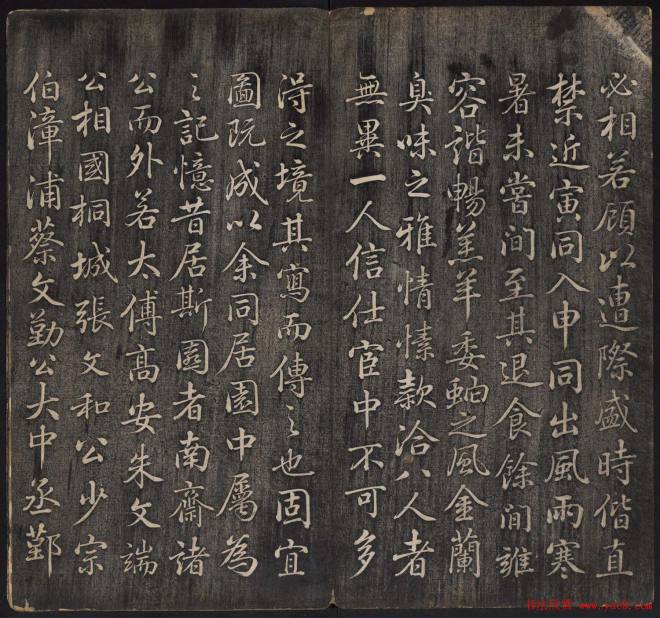 必相若顧以遭際盛時偕直
禁近寅同入申同出風雨寒
暑未嘗間至其退食餘閒雝
容諧暢羔羊委蛇之風金蘭
臭味之雅情愫款洽八人者
無異一人信仕宦中不可多
得之境其寫而傳之也固宜
圖既成以余同居園中屬為
之記憶昔居斯園者南齋諸
公而外若大傅高安朱文端
公相國桐城張文和公少宗
伯漳浦蔡文勤公大中丞鄞
书法欣赏 www.yac8.com